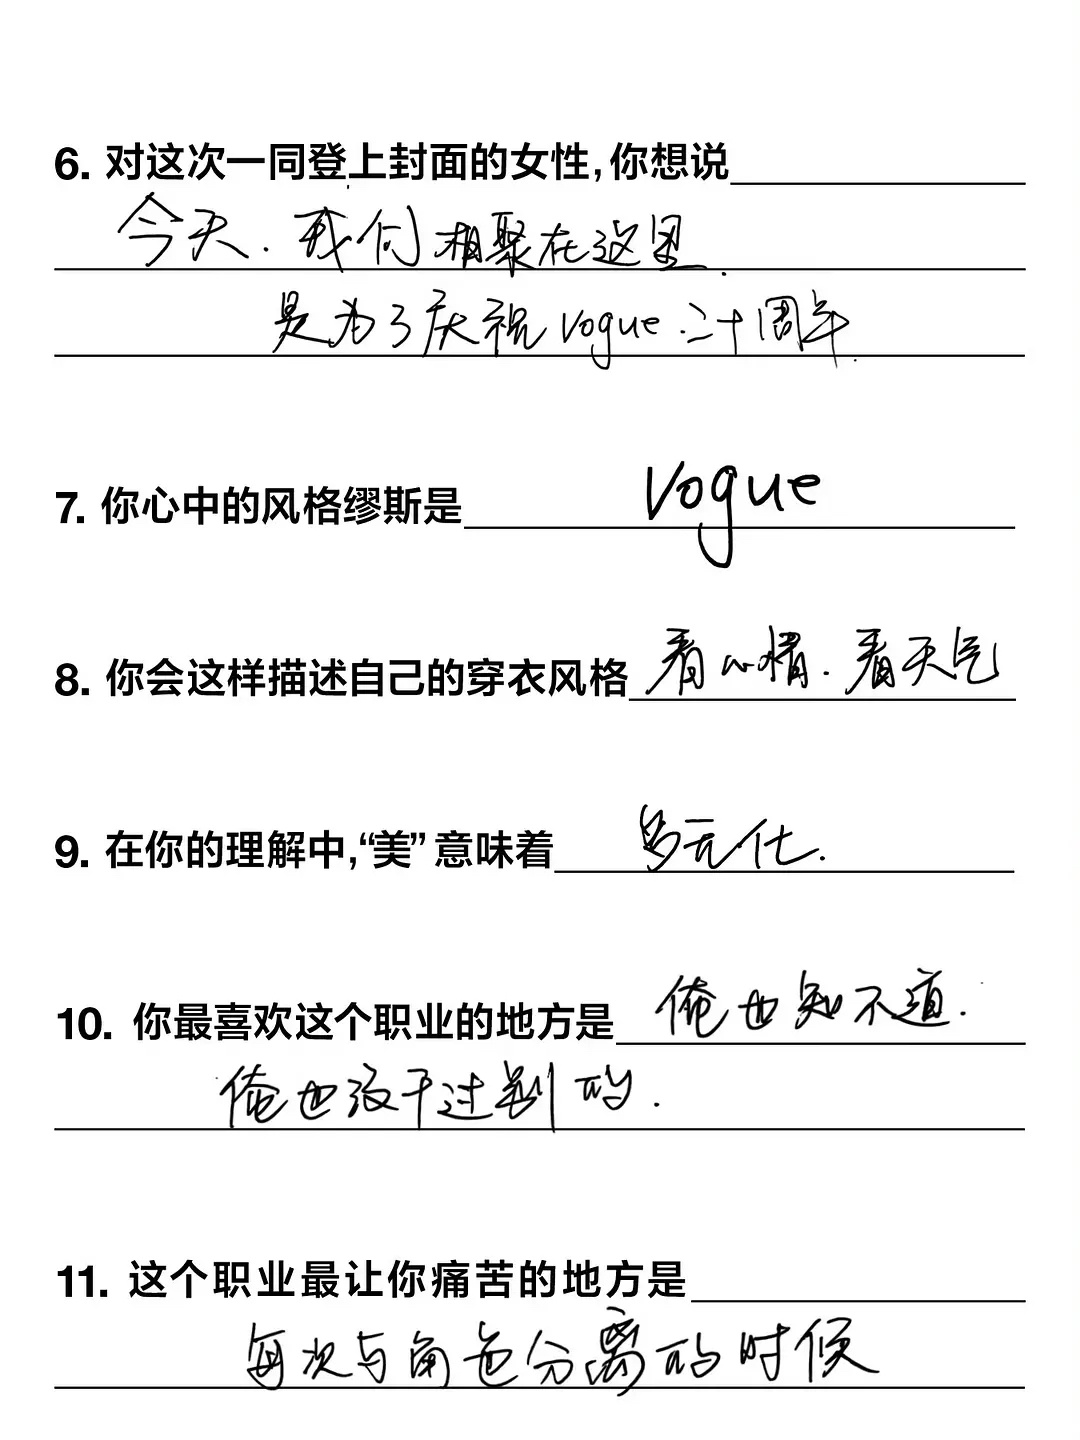 6. 对这次一同登上封面的女性,你想说
今天.我们相聚在这里.
是为了庆祝vogue.二十周年.
7. 你心中的风格缪斯是 vogue
8. 你会这样描述自己的穿衣风格 看心情.看天气
9. 在你的理解中,“美”意味着 多元化.
10. 你最喜欢这个职业的地方是 俺也知不道.
俺也没干过别的.
11. 这个职业最让你痛苦的地方是
每次与角色分离的时候